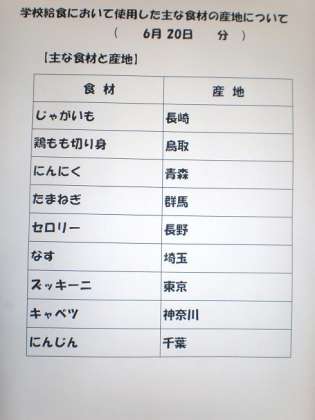 学校給食において使用した主な食材の産地について
（ 6月 20日 分 ）
【主な食材と産地】
食 材 産 地
じゃがいも 長崎
鶏もも切り身 鳥取
にんにく 青森
たまねぎ 群馬
セロリー 長野
なす 埼玉
ズッキーニ 東京
キャベツ 神奈川
にんじん 千葉